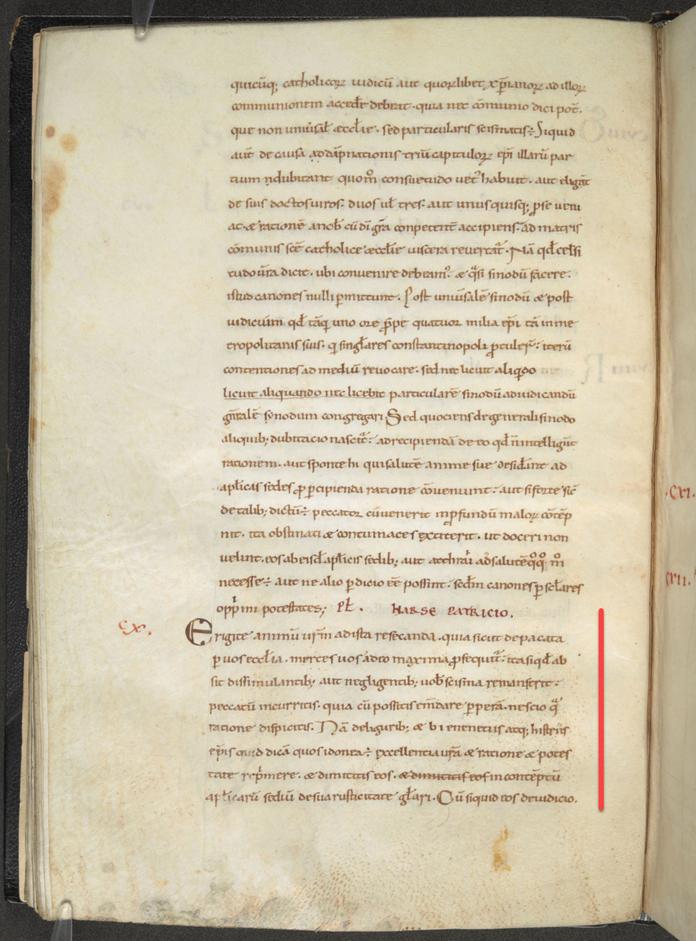 quicūq; catholicoꝝ iudiciū aut quoꝝlibet xp̄ianoꝝ ad illoꝝ
communionem accedē debeat. quia nec cōmunio dici pot̄.
que non uniūsal̄ eccl̄ie. sed particularis scismatis; Siquid
aut̄ de causa ad dāpnationis triū capituloꝝ ep̄i illarū par
tium n̄ dubitant quom̄ consuetudo uet̄ habuit. aut eligāt
de suis doctos uiros. duos ul̄ tres. aut unusquisq; p̄se ueni
at. & rationē a nob̄ cū dī gr̄a competent̄ accipiens. ad matris
cōmunis sc̄e catholice eccl̄ie uiscera reuertat̄. Nā qd̄ celsi
tudo ur̄a dicit. ubi conuenire debeam᷒. & q̄si sinodū facere.
istud canones nulli p̄mittunt. Post uniūsalē sinodū & post
iudicium qd̄ tāq̄ uno ore p̄pe quatuor milia ep̄i tā in me
tropolitanis suis. q̄ singl̄ares constantinopoli p̄tuler̄. iterū
contentiones ad mediū reuocare. sed nec licuit aliq̄do
licuit aliquando nec licebit particularē sinodū adiudicandū
gn̄alē synodum congregari Sed quociens de generali sinodo
aliquib; dubitacio nascit̄. ad recipiendā de eo qd̄ n̄ intelligūt
rationem. aut sponte hi qui salutē anime sue desid̄ant ad
ap̄licas sedes p̄ p̄cipienda ratione cōueniunt. aut si forte sic̄
de talib; dictū÷ peccator cū uenerit in p̄fundū maloꝝ cōtēp
nit. ita obstinati & contumaces extiterit. ut doceri non
uelint. eos ab eisd̄ ap̄licis sedib; aut attrahi ad salutē q̄q̄ m̄
necesse÷ aut ne alioꝝ p̄dicio ēē possint. sedm̄ canones p̄ scl̄ares
opp̄mi potestates; Pl̄. NARSE PATRICIO.
cx. Erigite animū ur̄m ad ista resecanda. quia sicut de pacata
p̄ uos eccl̄ia. merces uos ad eo maxima p̄sequit̄. ita siqd̄ ab
sit dissimulantib; aut negligentib; uob̄ scisma remanserit.
peccatū incurritis. quia cū possitis em̄dare p̄perā. nescio q̄
ratione dispicitis. Nā de ligurib; & b i enenetus atq; histriis
ep̄is quid dicā quos idonea÷ excellentia ur̄a & ratione & potes
tate rep̄mere. & dimittitis eos. & dimittitis eos in contēptū
ap̄licarū sediū de sua rusticitate gl̄ari. Cū siquid eos de iudicio.